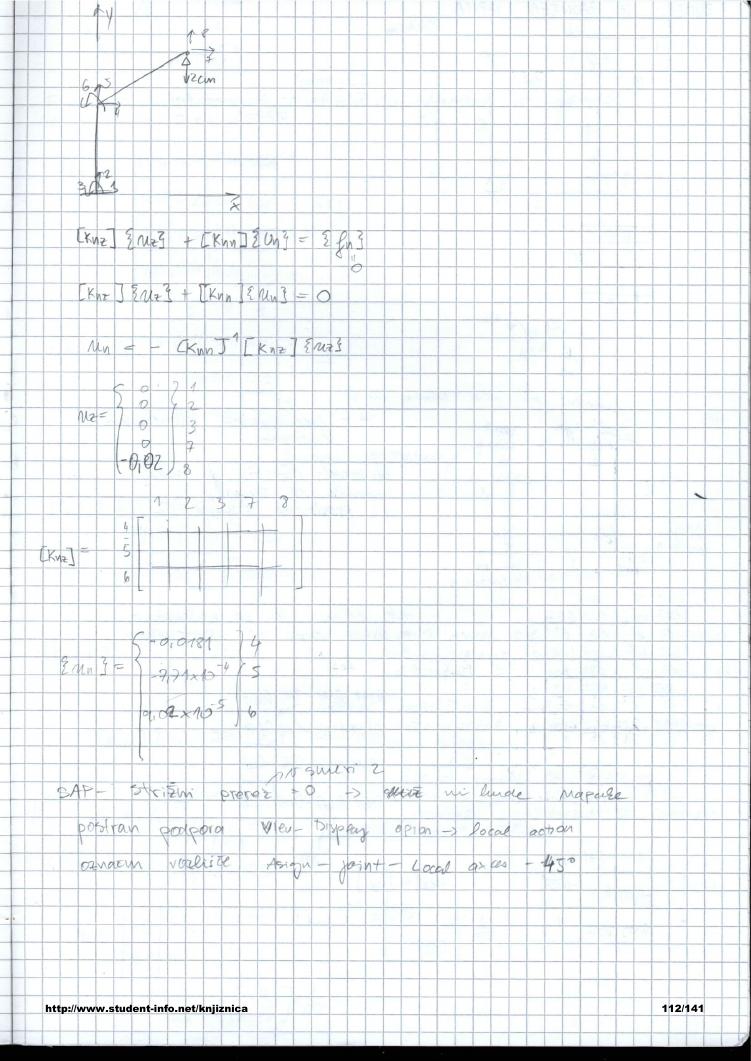 y
8
7
2cm
6 5
4
3 2 1
x
[Knz] {uz} + [Knn]{Un} = {fn}
0
[Knz] {uz} + [Knn] {un} = 0
un = - [Knn]⁻¹ [Knz] {uz}
0 1
0 2
uz = 0 3
0 7
-0,02 8
1 2 3 7 8
4
[Knz] = 5
6
-0,0181 4
{un} = -7,71x10⁻⁴ 5
9,02x10⁻⁵ 6
v smeri 2
SAP - strižni prerez = 0 → ni hude napake
postran podpora View - Display option → local action
označim vozlišče Asign - joint - Local axes - 45°
http://www.student-info.net/knjiznica
112/141